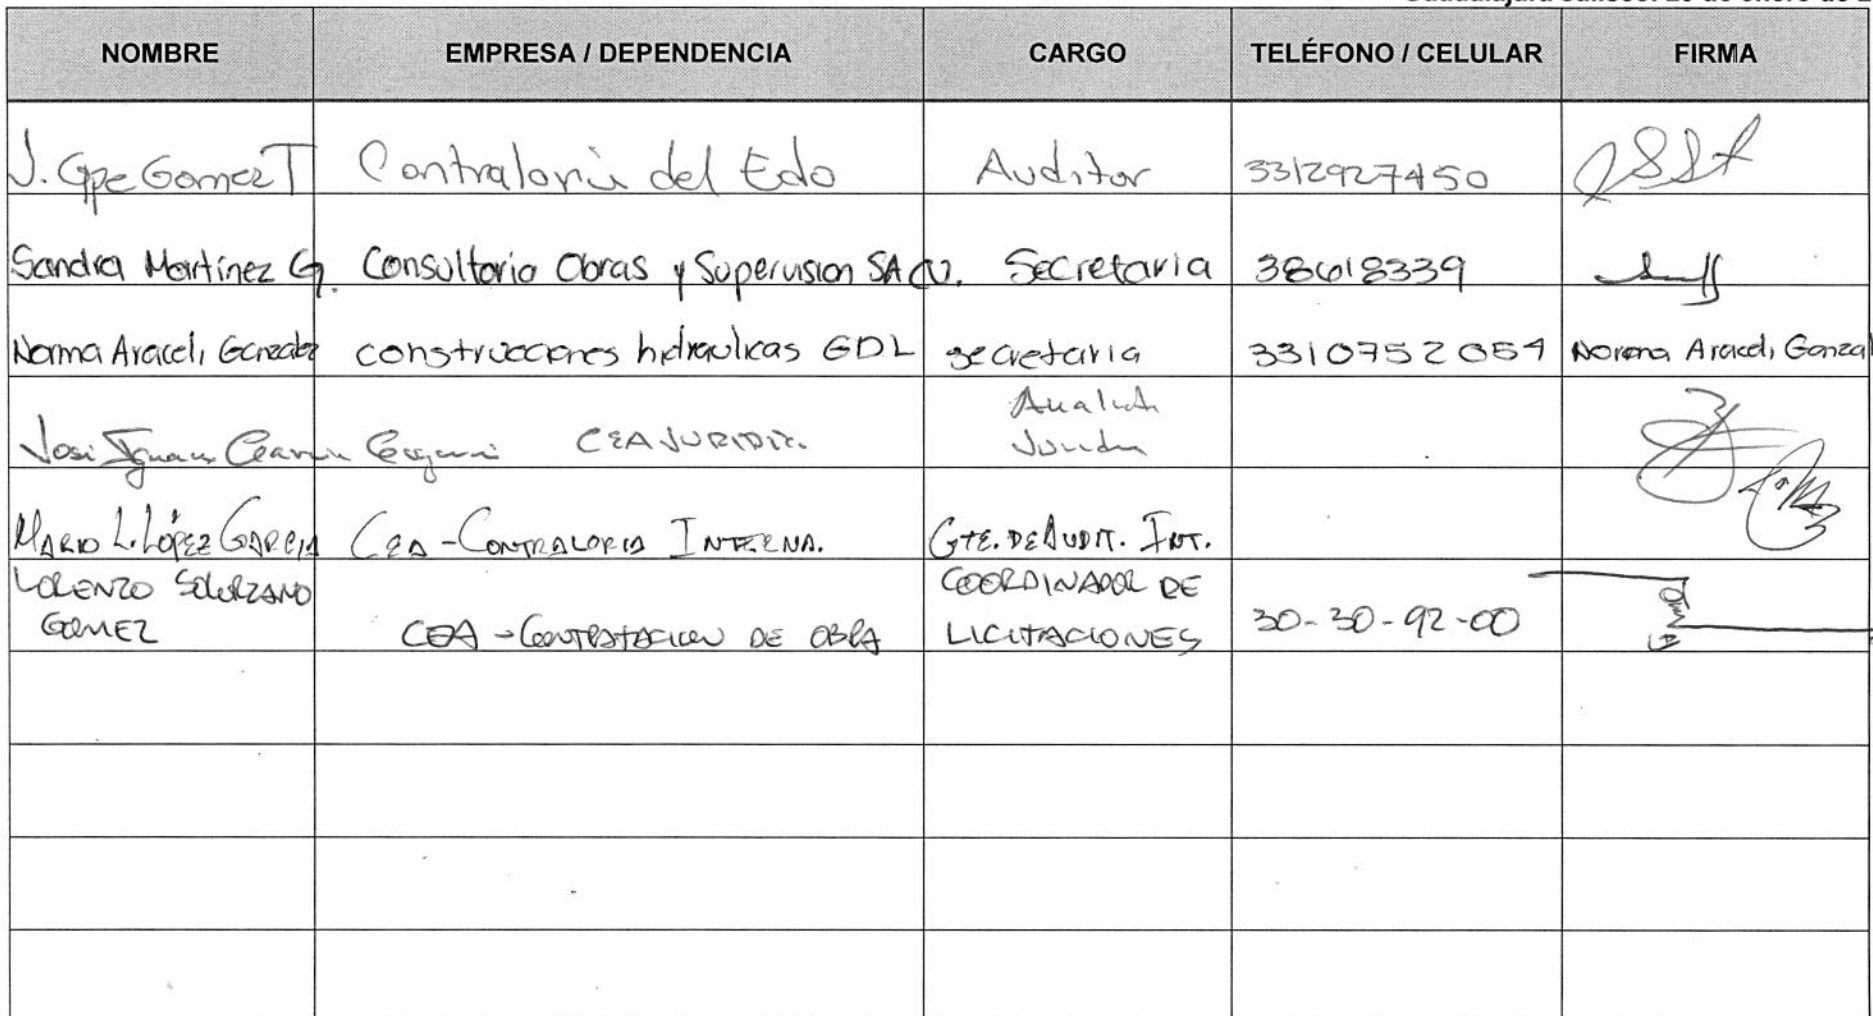 NOMBRE EMPRESA / DEPENDENCIA CARGO TELÉFONO / CELULAR FIRMA
J. Gpe Gomez T Contraloria del Edo Auditor 3312927450
Sandra Martínez G. Consultoria Obras y Supervision SA CV. Secretaria 38618339
Norma Araceli Gonzalez construcciones hidraulicas GDL secretaria 3310752054 Norma Araceli Gonzal
José Ignacio CEA JURIDIC. Analista
MARIO L. LÓPEZ GARCIA CEA - CONTRALORIA INTERNA. GTE. DE AUDIT. INT.
LORENZO SOLORZANO COORDINADOR DE
GOMEZ CEA - CONTRATACION DE OBRA LICITACIONES 30-30-92-00